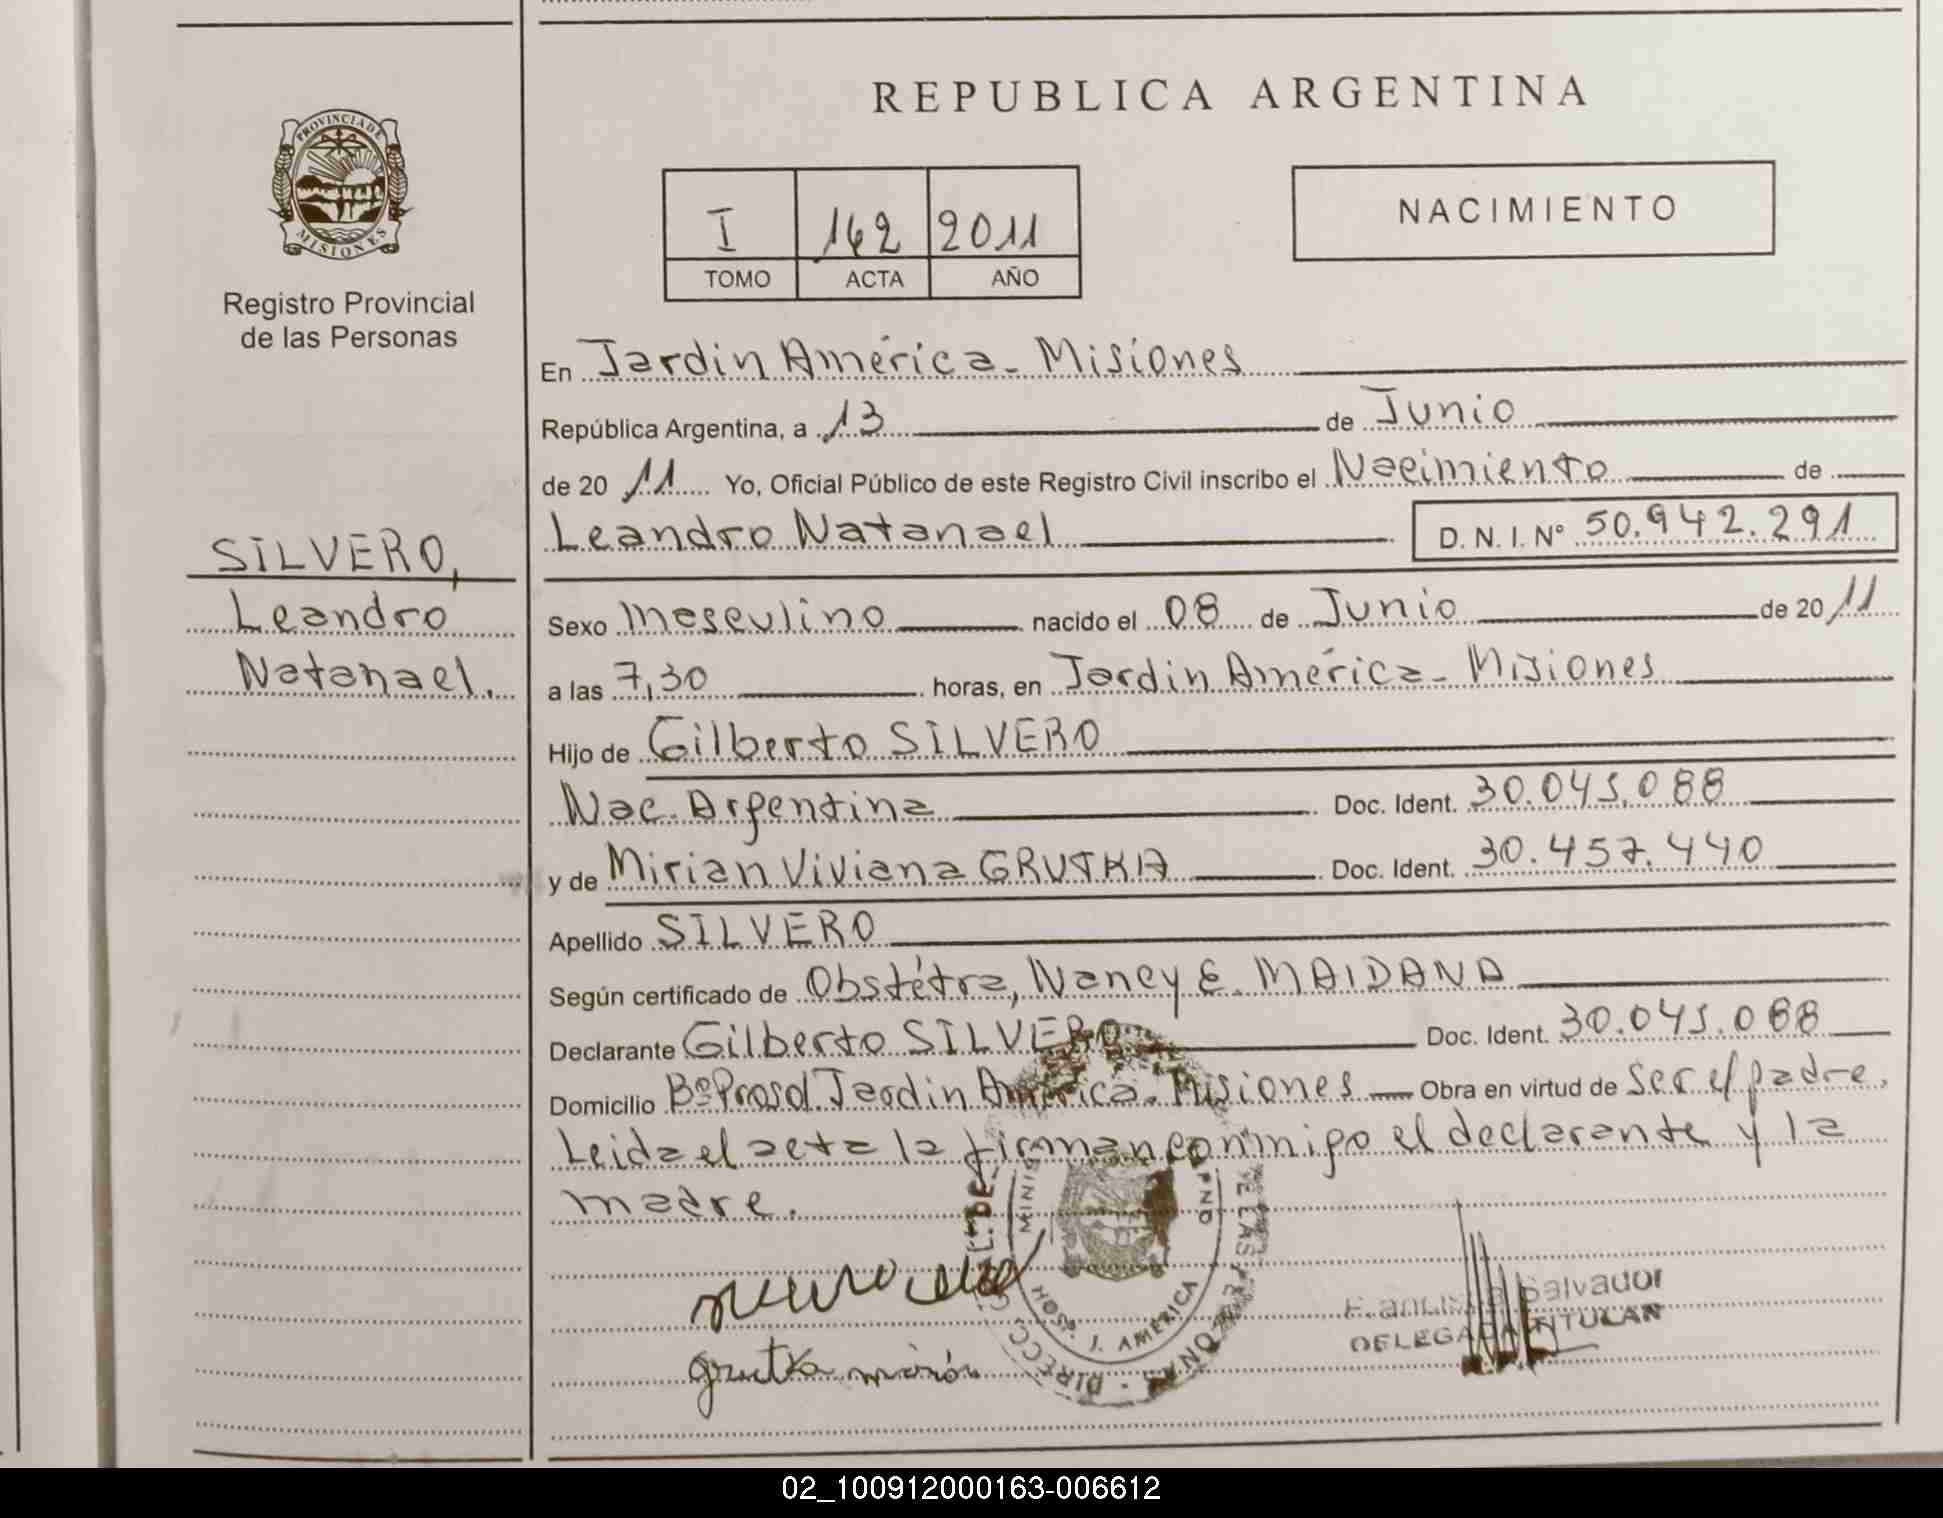 PROVINCIA DE
MISIONES
Registro Provincial
de las Personas
SILVERO,
Leandro
Natanael.
REPUBLICA ARGENTINA
I 162 2011
TOMO ACTA AÑO
NACIMIENTO
En Jardin América - Misiones
República Argentina, a 13 de Junio
de 20 11 Yo, Oficial Público de este Registro Civil inscribo el Nacimiento de
Leandro Natanael D. N. I. Nº 50.942.291
Sexo Masculino nacido el 08 de Junio de 20 11
a las 7,30 horas, en Jardin América - Misiones
Hijo de Gilberto SILVERO
Nac. Argentina Doc. Ident. 30.045.088
y de Mirian Viviana GRUTKA Doc. Ident. 30.457.440
Apellido SILVERO
Según certificado de Obstétra, Nancy E. MAIDANA
Declarante Gilberto SILVERO Doc. Ident. 30.045.088
Domicilio Bº Prosol Jardin América - Misiones Obra en virtud de ser el padre.
Leida el acta la firman conmigo el declarante y la
madre.
HOSP. J. AMERICA
grutka
Salvador
DELEGADA TITULAR
02_100912000163-006612